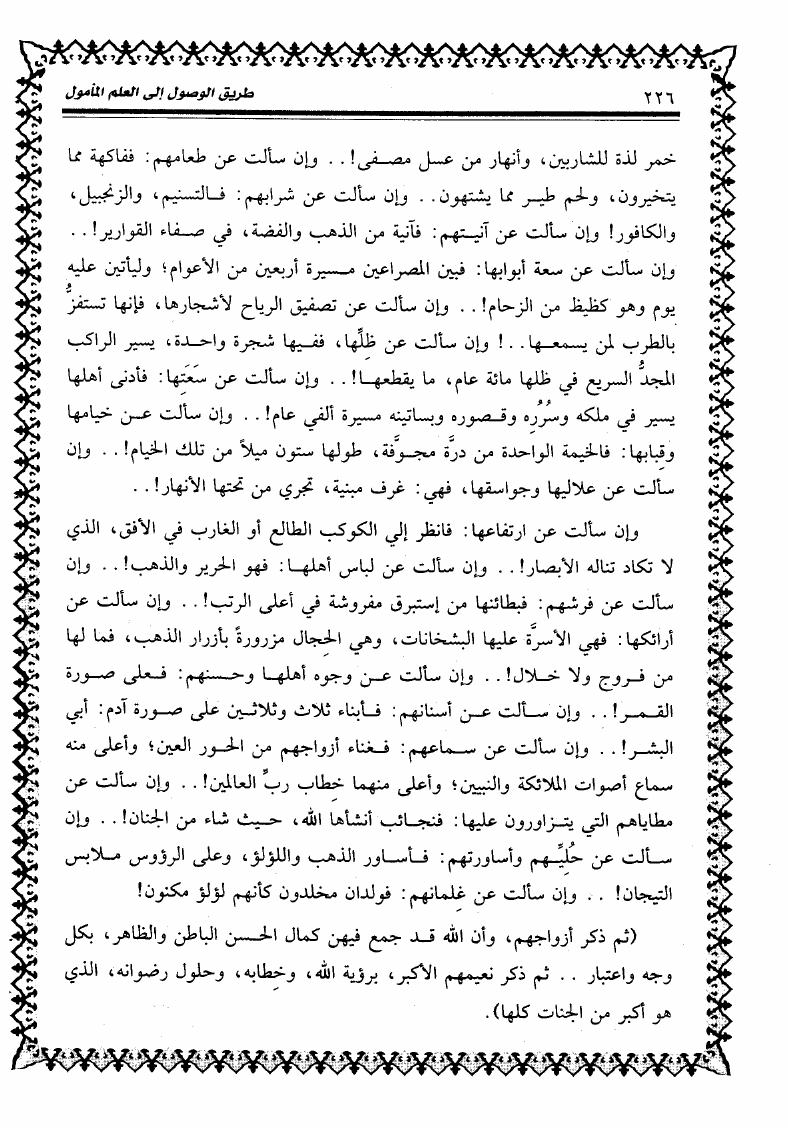 ٢٢٦
طريق الوصول إلى العلم المأمول
خمر لذة للشاربين، وأنهار من عسل مصفى!.. وإن سألت عن طعامهم: ففاكهة مما
يتخيرون، ولحم طير مما يشتهون.. وإن سألت عن شرابهم: فالتسنيم، والزنجبيل،
والكافور! وإن سألت عن آنيتهم: فآنية من الذهب والفضة، في صفاء القوارير!..
وإن سألت عن سعة أبوابها: فبين المصراعين مسيرة أربعين من الأعوام؛ وليأتين عليه
يوم وهو كظيظ من الزحام!.. وإن سألت عن تصفيق الرياح لأشجارها، فإنها تستفزُّ
بالطرب لمن يسمعها..! وإن سألت عن ظلِّها، ففيها شجرة واحدة، يسير الراكب
المجدُّ السريع في ظلها مائة عام، ما يقطعها!.. وإن سألت عن سَعَتِها: فأدنى أهلها
يسير في ملكه وسُرُره وقصوره وبساتينه مسيرة ألفي عام!.. وإن سألت عن خيامها
وقِبابها: فالخيمة الواحدة من درَّة مجوَّفة، طولها ستون ميلاً من تلك الخيام!.. وإن
سألت عن علاليها وجواسقها، فهي: غرف مبنية، تجري من تحتها الأنهار!..
وإن سألت عن ارتفاعها: فانظر إلي الكوكب الطالع أو الغارب في الأفق، الذي
لا تكاد تناله الأبصار!.. وإن سألت عن لباس أهلها: فهو الحرير والذهب!.. وإن
سألت عن فرشهم: فبطائنها من إستبرق مفروشة في أعلى الرتب!.. وإن سألت عن
أرائكها: فهي الأسرَّة عليها البشخانات، وهي الحِجال مزرورةً بأزرار الذهب، فما لها
من فروج ولا خلال!.. وإن سألت عن وجوه أهلها وحسنهم: فعلى صورة
القمر!.. وإن سألت عن أسنانهم: فأبناء ثلاث وثلاثين على صورة آدم: أبي
البشر!.. وإن سألت عن سماعهم: فغناء أزواجهم من الحور العين؛ وأعلى منه
سماع أصوات الملائكة والنبيين؛ وأعلى منهما خِطاب ربِّ العالمين!.. وإن سألت عن
مطاياهم التي يتزاورون عليها: فنجائب أنشأها الله، حيث شاء من الجنان!.. وإن
سألت عن حُلِيِّهم وأساورتهم: فأساور الذهب واللؤلؤ، وعلى الرؤوس ملابس
التيجان! .. وإن سألت عن غِلمانهم: فولدان مخلدون كأنهم لؤلؤ مكنون!
(ثم ذكر أزواجهم، وأن الله قد جمع فيهن كمال الحسن الباطن والظاهر، بكل
وجه واعتبار .. ثم ذكر نعيمهم الأكبر، برؤية الله، وخِطابه، وحلول رضوانه، الذي
هو أكبر من الجنات كلها).